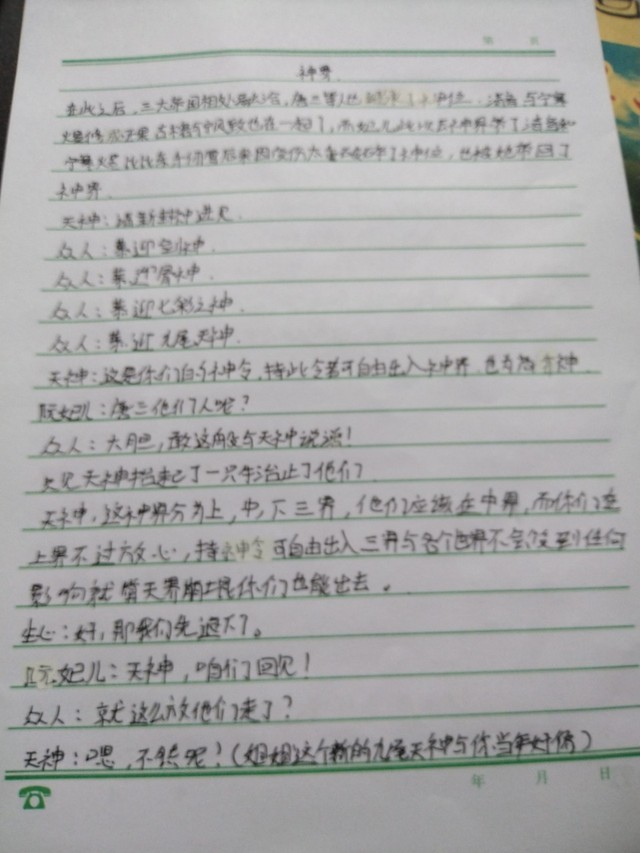 第 页
神界.
在此之后,三大帝国相处融洽,唐三等人也 了神位.洁
也在一起了,而妃儿 去神界带了
也被她带回了
神界.
天神:请新封神进见.
众人:恭迎 神.
众人:恭迎 神.
众人:恭迎七彩之神.
众人:恭迎九尾天神.
天神:这是你们的神令,持此令者可自由出入神界.也
阮妃儿:唐三他们人呢?
众人:大胆,敢这般与天神说话!
只见天神抬起了一只手治止了他们
天神:这神界分为上,中,下三界,他们应该在中界,而你们在
上界不过放心,持神令可自由出入三界与各个世界不会受到任何
影响就算天界崩塌你们也能出去。
生心:好,那我们先退下了。
阮妃儿:天神,咱们回见!
众人:就这么放他们走了?
天神:嗯,不然呢?(姐姐这个新的九尾天神与你当年好像)
年 月 日